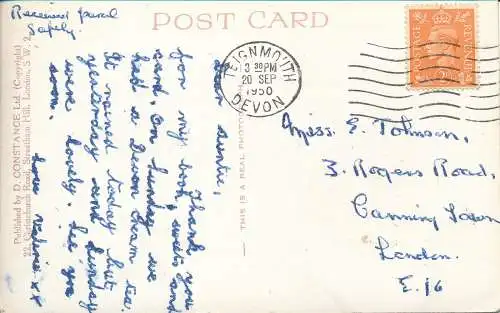 Received parcel
Safely.
POST CARD
TEIGNMOUTH
3 30 PM
20 SEP
1950
DEVON
POSTAGE
REVENUE
Dear Auntie,
Thank you
for my book, sweets and
card. On Sunday we
had a Devon cream tea.
It rained today but
yesterday and Sunday
were lovely. See you
soon.
Love
xx
Miss. E. Johnson,
3. Rogers Road,
Canning Town
London.
E.16
THIS IS A REAL PHOTO
Published by D. CONSTANCE Ltd. (Copyright)
22, Christchurch Road, Streatham Hill, London, S.W.2.